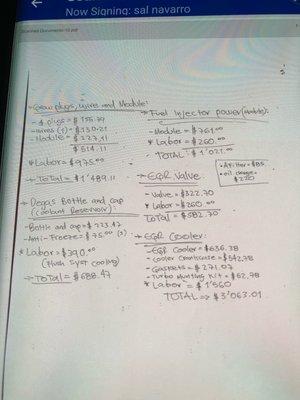 Now Signing: sal navarro
Scanned Documents-10.pdf
→ Glow plugs, wires and Module:
- 8 plugs = $155.79
- wires (1) = $130.21
- Module = $227,11
$514.11
* Labor = $975.00
→ Total = $1'489.11
→ Degas Bottle and cap
(coolant Reservoir):
- Bottle and cap = $223.47
- Anti-Freeze = $75.00 (3)
* Labor = $390.00
(Flush Syst cooling)
→ Total = $688.47
→ Fuel Injector power (Module):
- Module = $761.00
* Labor = $260.00
- TOTAL: $1'021.00
→ EGR Valve
- Valve = $322.70
* Labor = $260.00
Total = $582.70
• A/Filter = $85
• oil change =
$220
→ EGR Cooler:
- EGR Cooler = $636.38
- Cooler Crankcase = $542.78
- Gaskets = $271.07
- Turbo Mounting Kit = $52.78
* Labor = $1'560
TOTAL => $3'063.01